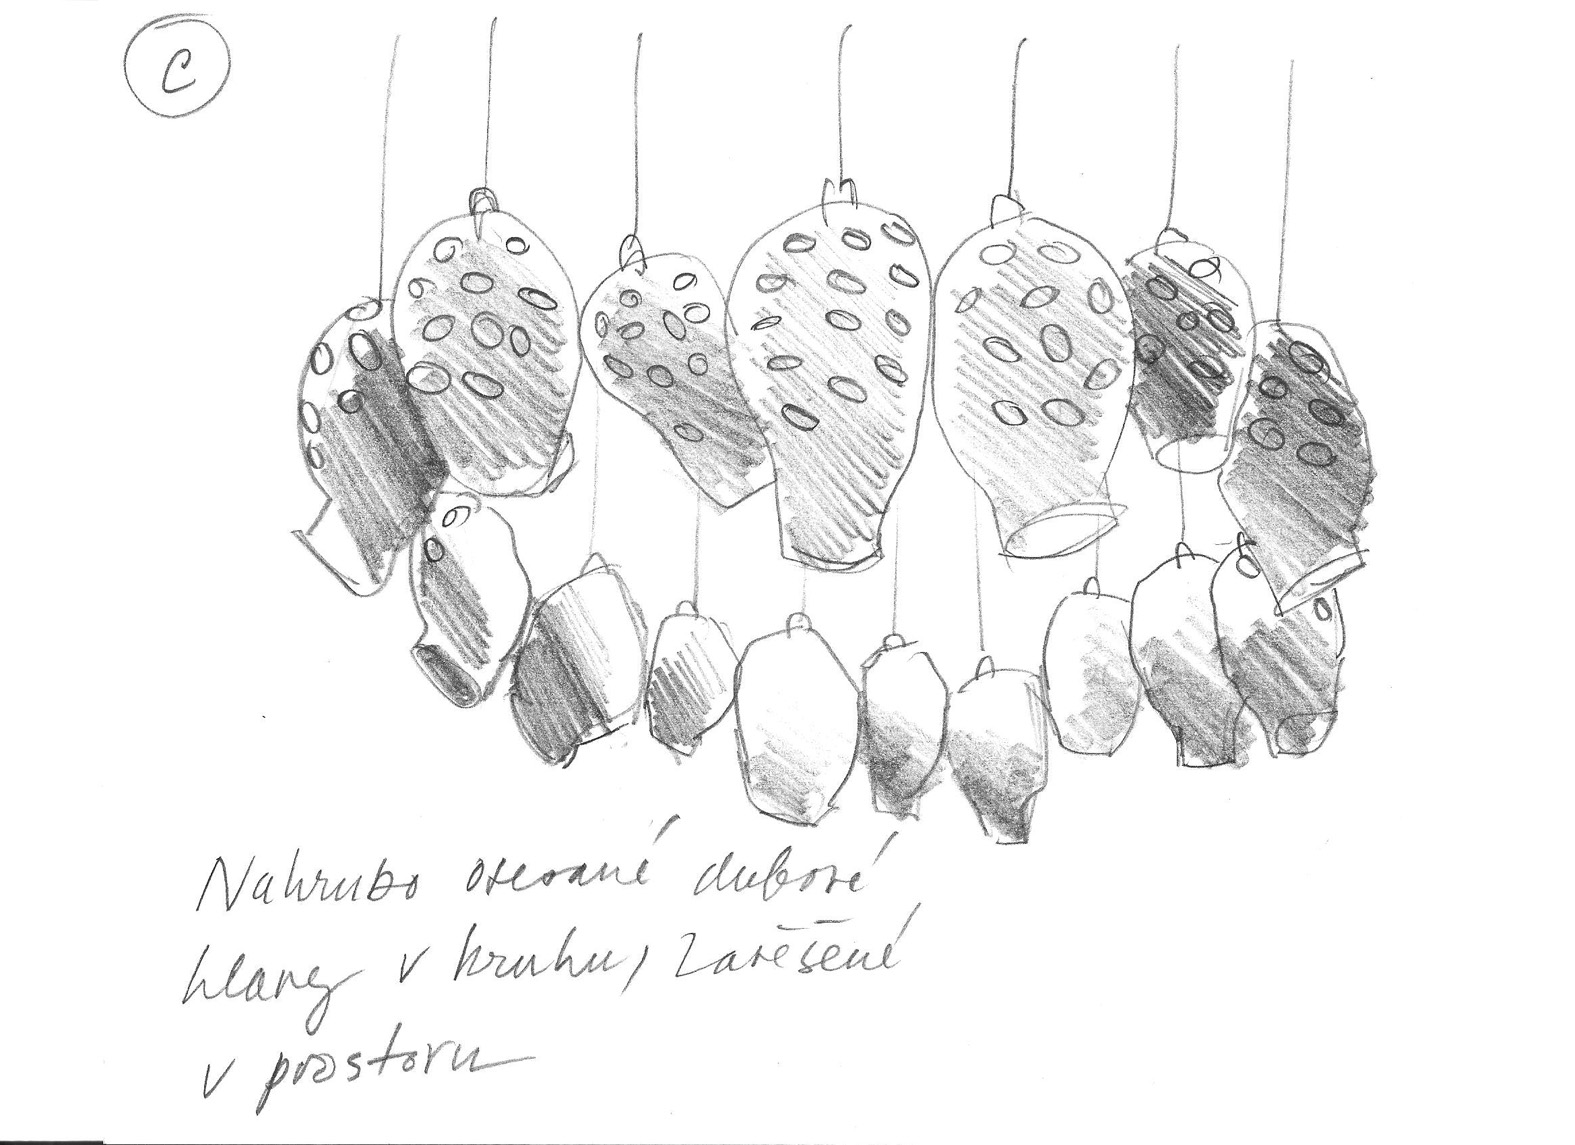 C
Nahrubo otesané dubové
hlavy v kruhu, zavěšené
v prostoru